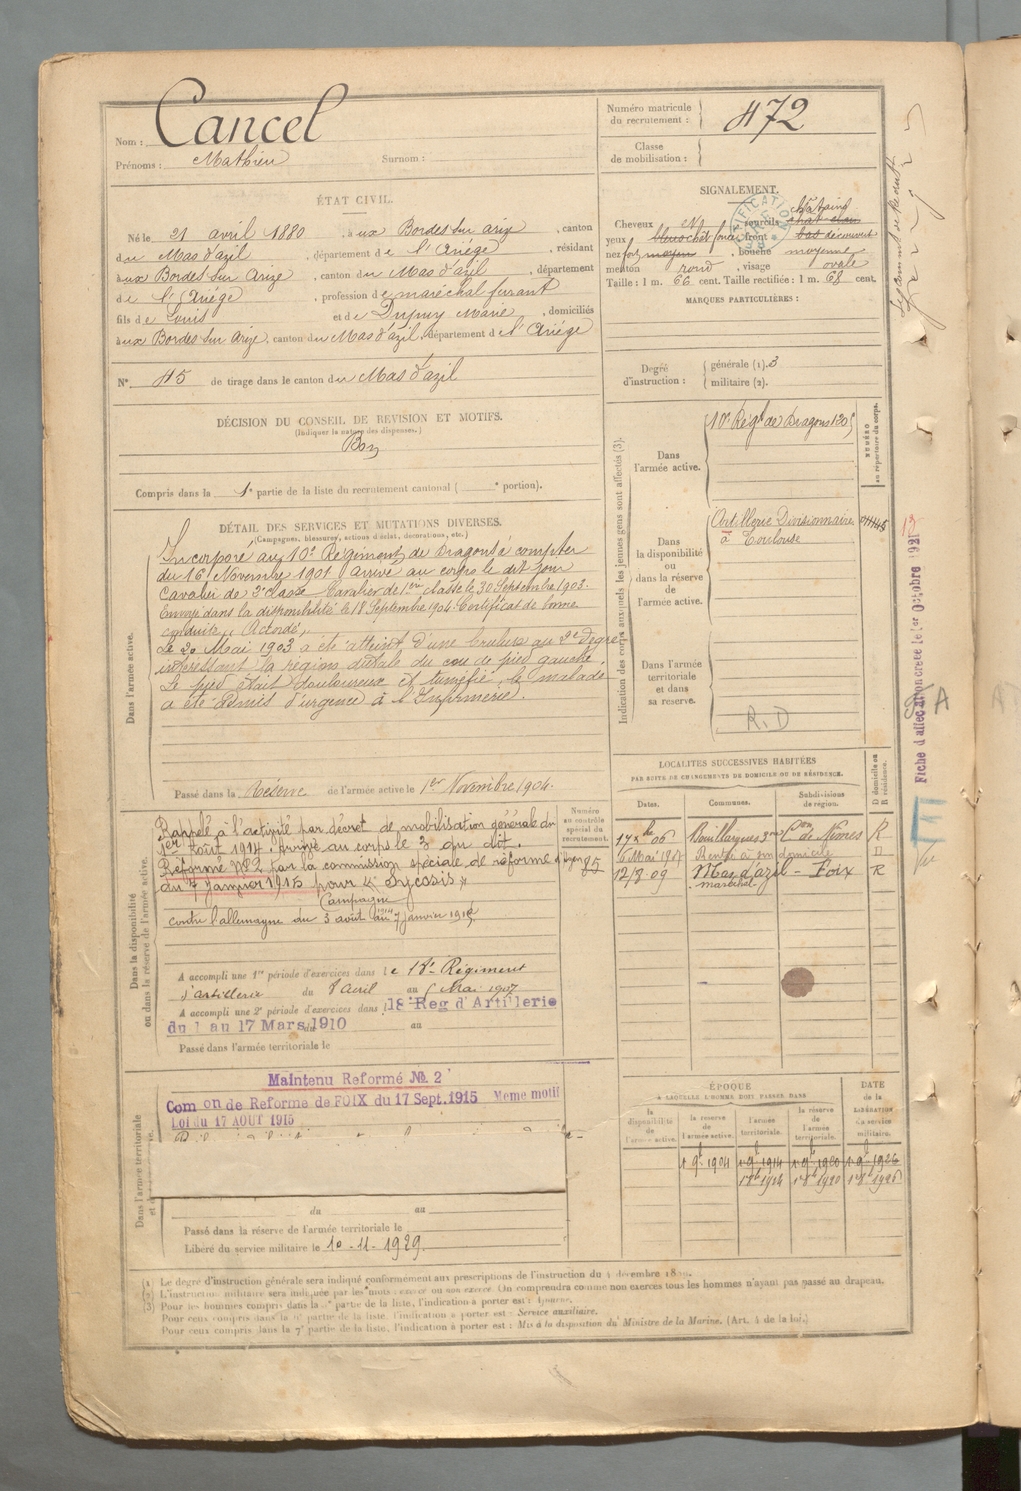 Nom : Cancel
Prénoms : Mathieu Surnom :
Numéro matricule du recrutement : 472
Classe de mobilisation :
ÉTAT CIVIL.
Né le 21 avril 1880, à ux Bordes sur arize, canton
du Mas d'azil, département de l'Ariége, résidant
à ux Bordes sur Arize, canton du Mas d'azil, département
de l'Ariége, profession de maréchal ferrant
fils de Louis et de Dupuy Marie, domiciliés
à ux Bordes sur Arize, canton du Mas d'azil, département de l'Ariége
N° 45 de tirage dans le canton du Mas d'azil
SIGNALEMENT.
Cheveux sourcils châtains
yeux front bas découvert
nez fort moyen, bouche moyenne
menton rond, visage ovale
Taille : 1 m. 66 cent. Taille rectifiée : 1 m. 68 cent.
MARQUES PARTICULIÈRES :
Degré d'instruction : générale (1). 3
militaire (2).
DÉCISION DU CONSEIL DE REVISION ET MOTIFS.
(Indiquer la nature des dispenses.)
Bon
Compris dans la 1e partie de la liste du recrutement cantonal ( e portion).
DÉTAIL DES SERVICES ET MUTATIONS DIVERSES.
(Campagnes, blessures, actions d'éclat, décorations, etc.)
Dans l'armée active.
Incorporé au 10e Régiment de Dragons à compter
du 16 Novembre 1901 Arrivé au corps le dit jour
Cavalier de 2e classe Cavalier de 1ère classe le 30 Septembre 1903.
Envoyé dans la disponibilité le 18 Septembre 1904. Certificat de bonne
conduite "Accordé"
Le 20 Mai 1903 a été atteint d'une brulure au 2e degré
intéressant la région dorsale du cou de pied gauche.
Le pied était douloureux et tuméfié, le malade
a été admis d'urgence à l'Infirmerie.
Passé dans la Réserve de l'armée active le 1er Novembre 1904.
Indication des corps auxquels les jeunes gens sont affectés (3).
NUMÉRO au répertoire du corps.
Dans l'armée active.
10e Régt de Dragons
Dans la disponibilité ou dans la réserve de l'armée active.
Artillerie Divisionnaire
à Toulouse
Dans l'armée territoriale et dans sa réserve.
R. D
Fiche d'affectation créée le 1er Octobre 1921
Dans la disponibilité ou dans la réserve de l'armée active.
Rappelé à l'activité par décret de mobilisation générale du
1er Août 1914. Arrivé au corps le 3 du dit.
Réformé N°2 par la commission spéciale de réforme
du 7 janvier 1915 pour Sycosis
Campagne
contre l'allemagne du 3 août 1914 au 7 janvier 1915
Numéro au contrôle spécial du recrutement.
A accompli une 1re période d'exercices dans le 18e Régiment
d'artillerie du 8 avril au 5 Mai 1907
A accompli une 2e période d'exercices dans l 18e Reg d'Artillerie
du 1 au 17 Mars 1910 au
Passé dans l'armée territoriale le
LOCALITÉS SUCCESSIVES HABITÉES
PAR SUITE DE CHANGEMENTS DE DOMICILE OU DE RÉSIDENCE.
Dates. Communes. Subdivisions de région. D domicile ou R résidence.
17 Xbre 06 Bouillargues Con de Nîmes R
6 Mai 1907 Rentré à son domicile D
12/8 09 Mas d'azil - Foix R
maréchal
Dans l'armée territoriale
Maintenu Reformé No. 2
Comon de Reforme de FOIX du 17 Sept. 1915 Meme motif
Loi du 17 AOUT 1915
du au
Passé dans la réserve de l'armée territoriale le
Libéré du service militaire le 10-11-1929.
ÉPOQUE
A LAQUELLE L'HOMME DOIT PASSER DANS
la disponibilité de l'armée active. la réserve de l'armée active. l'armée territoriale. la réserve de l'armée territoriale. DATE de la LIBÉRATION du service militaire.
1 9bre 1904 1 9bre 1914 1 9bre 1920 1 9bre 1926
1 8bre 1914 1 8bre 1920 1 8bre 1926
(1) Le degré d'instruction générale sera indiqué conformément aux prescriptions de l'instruction du 4 décembre 1889.
(2) L'instruction militaire sera indiquée par les mots : exercé ou non exercé. On comprendra comme non exercés tous les hommes n'ayant pas passé au drapeau.
(3) Pour les hommes compris dans la partie de la liste, l'indication à porter est : Ajourné.
Pour ceux compris dans la 6e partie de la liste, l'indication à porter est : Service auxiliaire.
Pour ceux compris dans la 7e partie de la liste, l'indication à porter est : Mis à la disposition du Ministre de la Marine. (Art. 4 de la loi.)